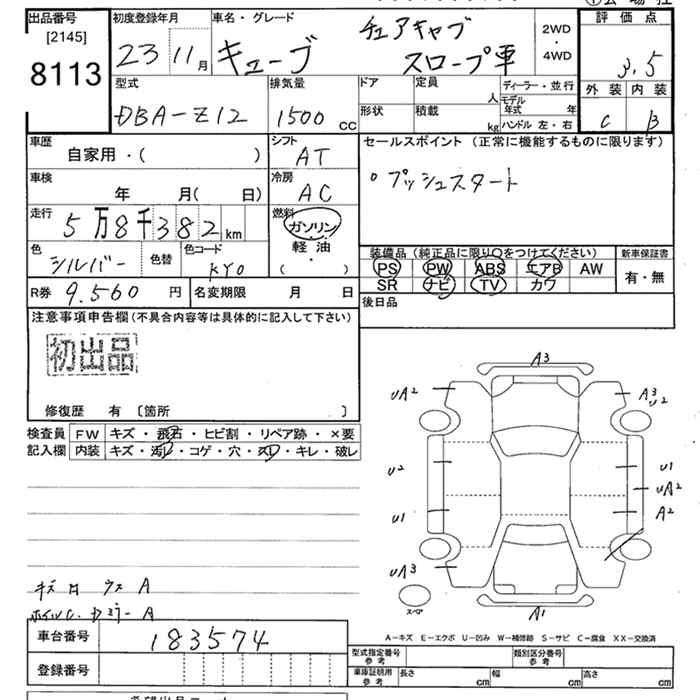 出品番号 初度登録年月 車名・グレード 評価点
[2145]
8113
23 11月 キューブ チェアキャブ スロープ車
2WD
・
4WD
3.5
外装 内装
C B
型式 排気量 ドア 定員 人 ディーラー・並行
DBA-Z12 1500 CC
形状 積載 kg モデル年式 年
ハンドル 左・右
車歴 シフト セールスポイント (正常に機能するものに限ります)
自家用・( ) AT
○プッシュスタート
車検 冷房
年 月( 日) AC
走行 燃料
5万8千382km ガソリン
軽油・
( )
色 色替 色コード
シルバー KY0
装備品 (純正品に限り○をつけてください) 新車保証書
PS PW ABS エアB AW
SR ナビ TV カワ
有・無
R券 9.560円 名変期限 月 日
後日品
注意事項申告欄(不具合内容等は具体的に記入して下さい)
初出品
修復歴 有 〔箇所 〕
検査員 FW キズ・飛石・ヒビ割・リペア跡・×要
記入欄 内装 キズ・汚レ・コゲ・穴・スレ・キレ・破レ
A3
UA2
A3
U2
U2
U1
U1
UA2
A2
UA3
スペア
A1
A
ホイルC. Dミラー A
A-キズ E-エクボ U-凹み W-補修跡 S-サビ C-腐食 XX-交換済
車台番号 183574
登録番号
型式指定番号 参考 類別区分番号 参考
車庫証明用 参考 長さ cm 幅 cm 高さ cm